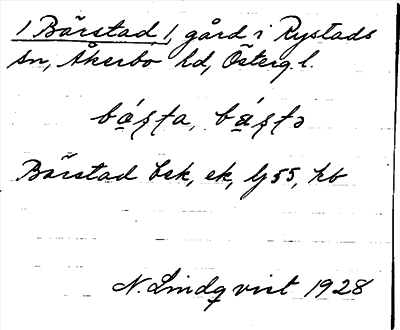 1 Bärstad 1, gård i Rystads
sn, Åkerbo hd, Östergl.
Bärstad bek, ek, lj 55, kb
N. Lindqvist 1928